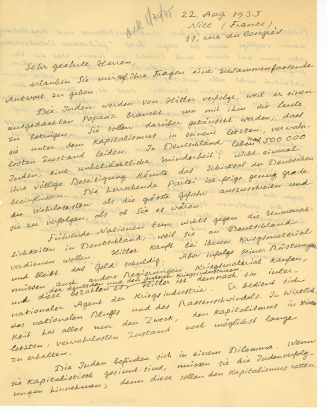 22 Aug 1935
Nice (France)
11, rue du Congrès
Sehr geehrte Herren,
erlauben Sie mir, auf Ihre Fragen eine zusammenfassende
Antwort zu geben
Die Juden werden von Hitler verfolgt, weil er einen
Popanz braucht, um mit ihm die Leute
zu betrügen. Sie sollen darüber getäuscht werden, dass
sie unter dem Kapitalismus in seinem letzten, verwahr-
losten Zustand leiden. In Deutschland leben 500 000
Juden, eine unbeträchtliche Minderheit; nicht einmal
ihre völlige Beseitigung könnte das Schicksal der Deutschen
beeinflussen. Die herrschende Partei hat genug grade
die Wehrlosesten als die grösste Gefahr auszuschreien und
sie zu verfolgen, als ob sie es wären.
Führende Nationen tun nichts gegen die Unmensch-
lichkeiten in Deutschland, weil sie an Deutschland
verdienen wollen. Hitler kauft bei ihnen Kriegsmaterial
und bleibt das Geld schuldig. Aber infolge seiner Rüstungen
müssen auch andere Regierungen Kriegsmaterial kaufen,
und dies bezahlen sie. Hitler ist demnach ein inter-
nationaler Agent der Kriegsindustrie. Er bedient sich
des nationalen Bluffs und des Rassenschwindels. In Wirklich-
keit hat alles nur den Zweck, den Kapitalismus in seinem
letzten, verwahrlosten Zustand noch möglichst lange
zu erhalten.
Die Juden befinden sich in einem Dilemma. Wenn
sie kapitalistisch gesinnt sind, müssen sie die Judenverfolg-
ungen hinnehmen, denn diese sollen den Kapitalismus retten.